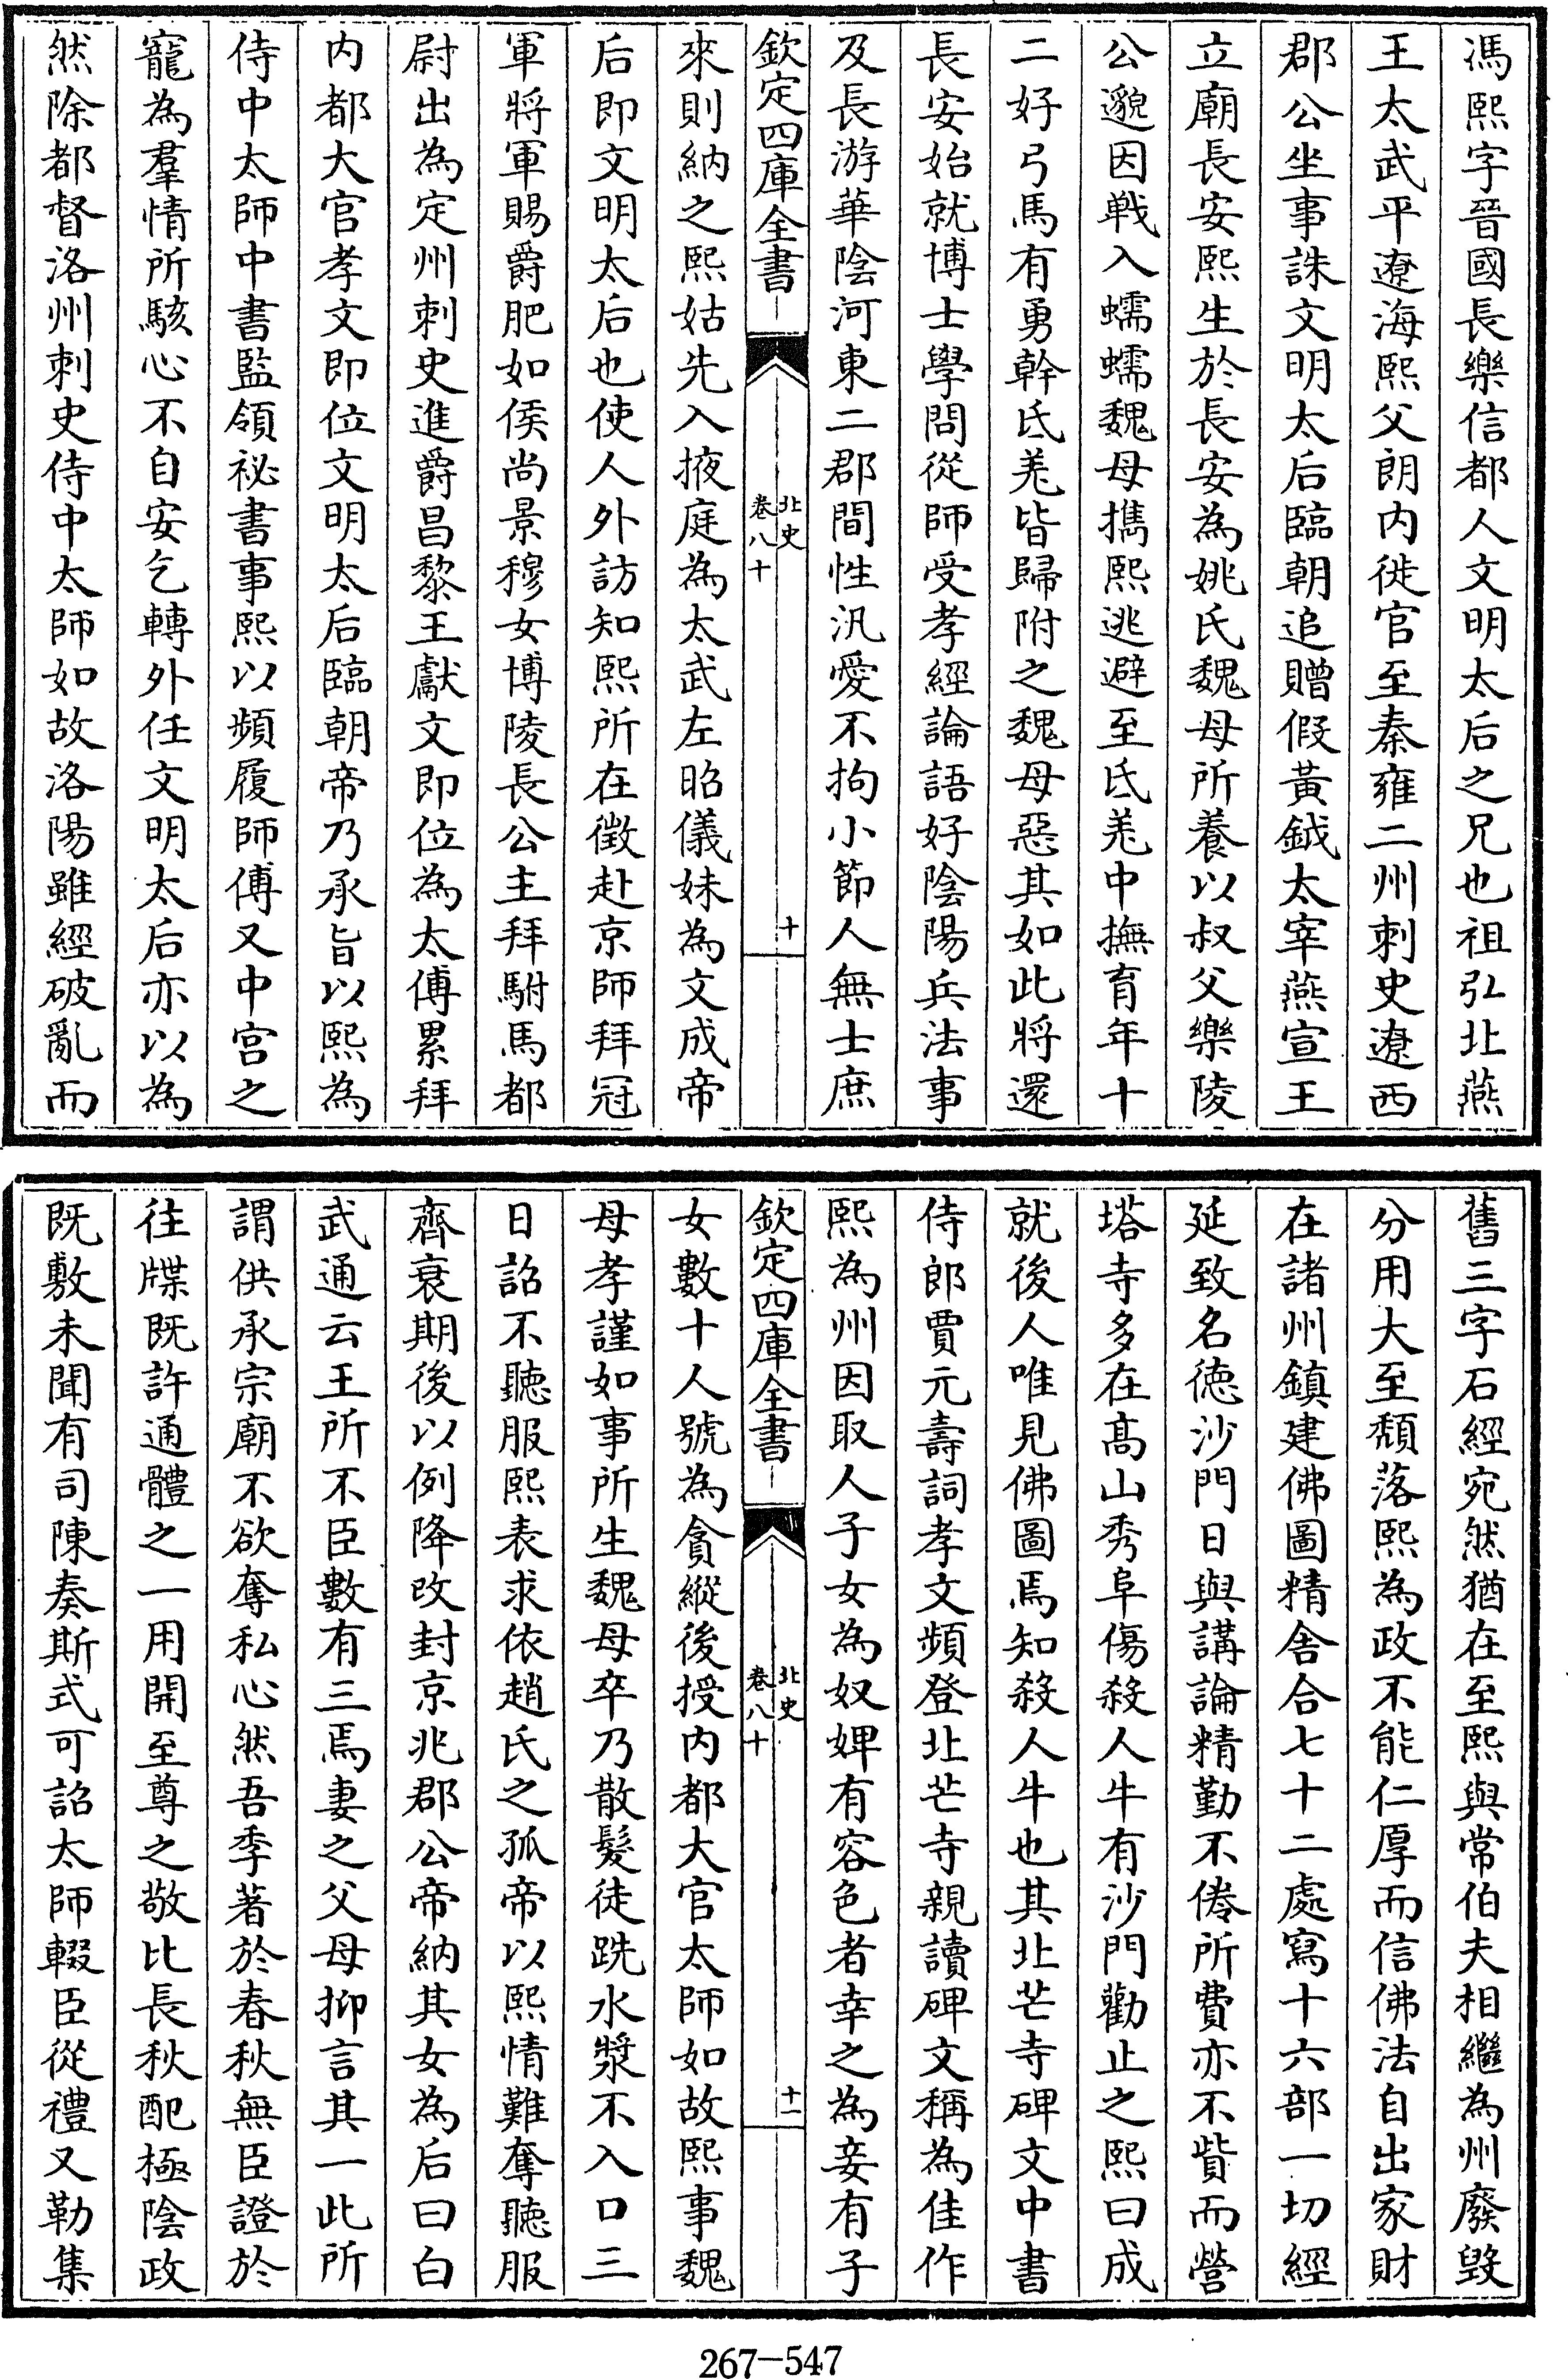 馮熙字晉國長樂信都人文明太后之兄也祖弘北燕
王太武平遼海熙父朗內徙官至秦雍二州刺史遼西
郡公坐事誅文明太后臨朝追贈假黃鉞太宰燕宣王
立廟長安熙生於長安為姚氏魏母所養以叔父樂陵
公邈因戰入蠕蠕魏母攜熙逃避至氐羌中撫育年十
二好弓馬有勇幹氐羌皆歸附之魏母惡其如此將還
長安始就博士學問從師受孝經論語好陰陽兵法事
及長游華陰河東二郡間性汎愛不拘小節人無士庶
欽定四庫全書
北史
卷八十
十
來則納之熙姑先入掖庭為太武左昭儀妹為文成帝
后即文明太后也使人外訪知熙所在徵赴京師拜冠
軍將軍賜爵肥如侯尚景穆女博陵長公主拜駙馬都
尉出為定州刺史進爵昌黎王獻文即位為太傅累拜
內都大官孝文即位文明太后臨朝帝乃承旨以熙為
侍中太師中書監領祕書事熙以頻履師傅又中宮之
寵為羣情所駭心不自安乞轉外任文明太后亦以為
然除都督洛州刺史侍中太師如故洛陽雖經破亂而
舊三字石經宛然猶在至熙與常伯夫相繼為州廢毀
分用大至頹落熙為政不能仁厚而信佛法自出家財
在諸州鎮建佛圖精舍合七十二處寫十六部一切經
延致名德沙門日與講論精勤不倦所費亦不貲而營
塔寺多在高山秀阜傷殺人牛有沙門勸止之熙曰成
就後人唯見佛圖焉知殺人牛也其北芒寺碑文中書
侍郎賈元壽詞孝文頻登北芒寺親讀碑文稱為佳作
熙為州因取人子女為奴婢有容色者幸之為妾有子
欽定四庫全書
北史
卷八十
十一
女數十人號為貪縱後授內都大官太師如故熙事魏
母孝謹如事所生魏母卒乃散髮徒跣水漿不入口三
日詔不聽服熙表求依趙氏之孤帝以熙情難奪聽服
齊衰期後以例降改封京兆郡公帝納其女為后曰白
武通云王所不臣數有三焉妻之父母抑言其一此所
謂供承宗廟不欲奪私心然吾季著於春秋無臣證於
往牒既許通體之一用開至尊之敬比長秋配極陰政
既敷未聞有司陳奏斯式可詔太師輟臣從禮又勒集
267-547